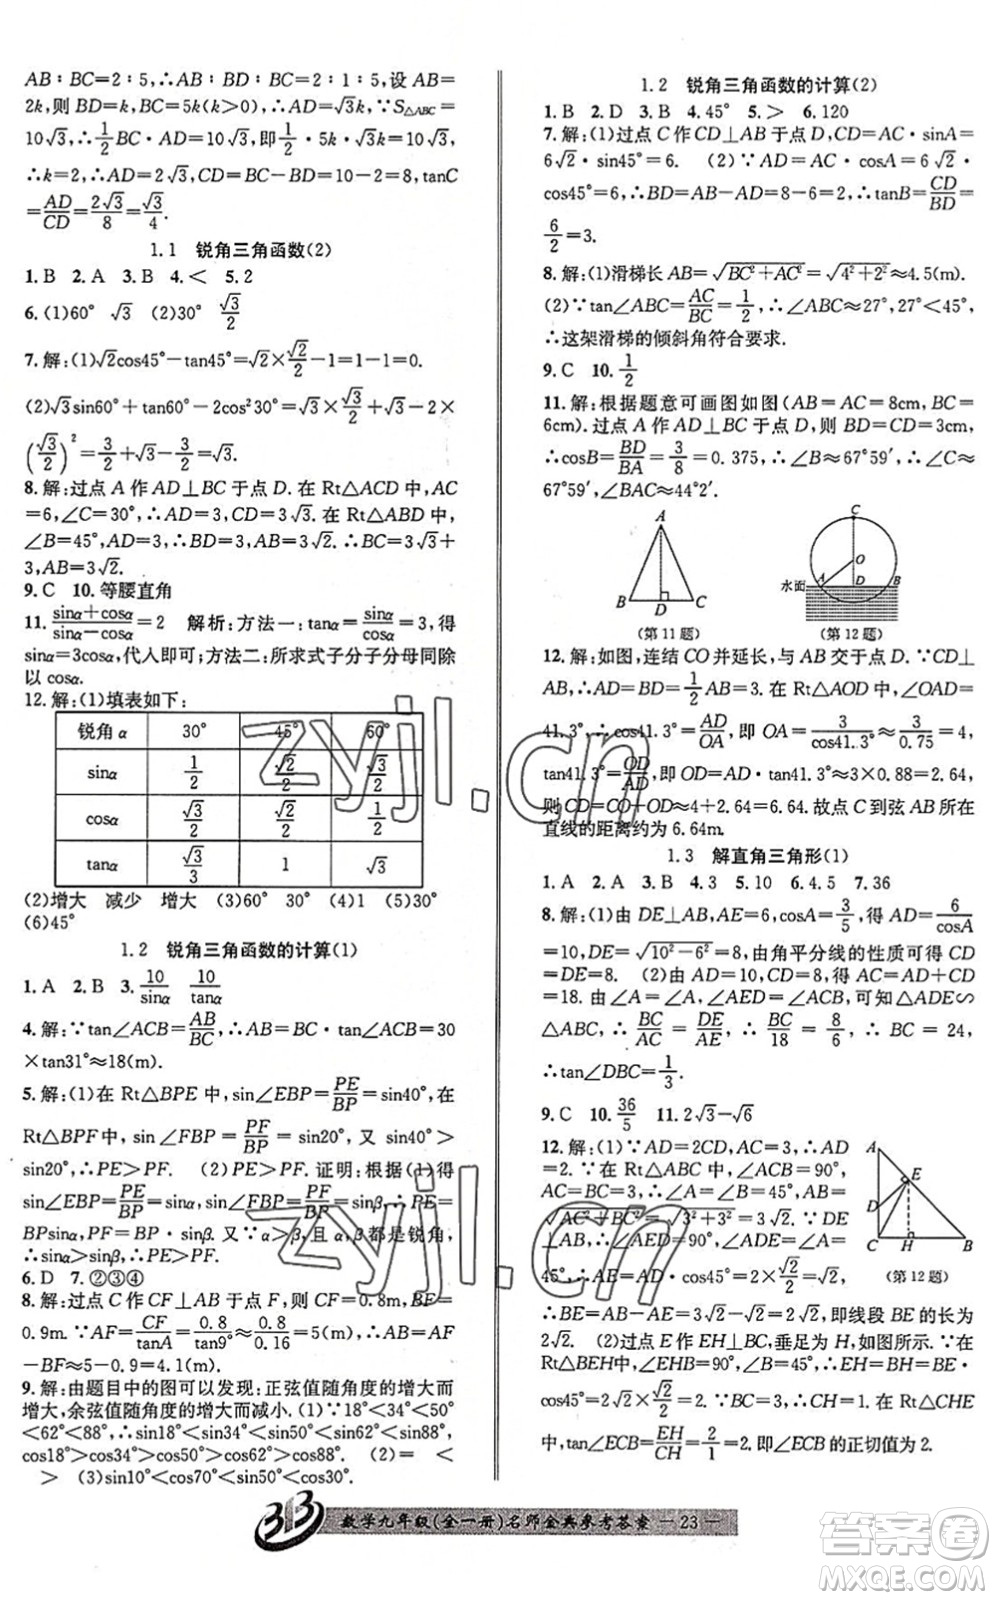 AB∶BC=2∶5,∴AB∶BD∶BC=2∶1∶5,设 AB=
2k,则 BD=k,BC=5k(k>0),∴AD=√3k,∵S△ABC=
10√3,∴1/2BC·AD=10√3,即1/2·5k·√3k=10√3,
∴k=2,∴AD=2√3,CD=BC-BD=10-2=8,tanC
=AD/CD=2√3/8=√3/4.
1.1 锐角三角函数(2)
1.B 2.A 3.B 4.< 5.2
6.(1)60° √3 (2)30° √3/2
7.解:(1)√2cos45°-tan45°=√2×√2/2-1=1-1=0.
(2)√3sin60°+tan60°-2cos²30°=√3×√3/2+√3-2×
(√3/2)²=3/2+√3-3/2=√3.
8.解:过点 A 作 AD⊥BC 于点 D.在 Rt△ACD 中,AC
=6,∠C=30°,∴AD=3,CD=3√3.在 Rt△ABD 中,
∠B=45°,AD=3,∴BD=3,AB=3√2.∴BC=3√3+
3,AB=3√2.
9.C 10.等腰直角
11.(sinα+cosα)/(sinα-cosα)=2 解析:方法一:tanα=sinα/cosα=3,得
sinα=3cosα,代入即可;方法二:所求式子分子分母同除
以 cosα.
12.解:(1)填表如下:
锐角α 30° 45° 60°
sinα 1/2 √2/2 √3/2
cosα √3/2 √2/2 1/2
tanα √3/3 1 √3
(2)增大 减少 增大 (3)60° 30° (4)1 (5)30°
(6)45°
1.2 锐角三角函数的计算(1)
1.A 2.B 3.10/sinα 10/tanα
4.解:∵tan∠ACB=AB/BC,∴AB=BC·tan∠ACB=30
×tan31°≈18(m).
5.解:(1)在 Rt△BPE 中,sin∠EBP=PE/BP=sin40°,在
Rt△BPF 中,sin∠FBP=PF/BP=sin20°,又 sin40°>
sin20°,∴PE>PF. (2)PE>PF 证明:根据(1)得
sin∠EBP=PE/BP=sinα,sin∠FBP=PF/BP=sinβ,∴PE=
BPsinα,PF=BP·sinβ.又∵α>β,且α、β都是锐角,∴
sinα>sinβ,∴PE>PF.
6.D 7.②③④
8.解:过点 C 作 CF⊥AB 于点 F,则 CF=0.8m,BF=
0.9m.∵AF=CF/tanA=0.8/tan9°≈0.8/0.16=5(m),∴AB=AF
-BF≈5-0.9=4.1(m).
9.解:由题目中的图可以发现:正弦值随角度的增大而
增大,余弦值随角度的增大而减小.(1)∵18°<34°<50°
<62°<88°,∴sin18°<sin34°<sin50°<sin62°<sin88°,
cos18°>cos34°>cos50°>cos62°>cos88°. (2)= <
> (3)sin10°<cos70°<sin50°<cos30°.
1.2 锐角三角函数的计算(2)
1.B 2.D 3.B 4.45° 5.> 6.120
7.解:(1)过点 C 作 CD⊥AB 于点 D,CD=AC·sinA=
6√2·sin45°=6. (2)∵AD=AC·cosA=6√2·
cos45°=6,∴BD=AB-AD=8-6=2,∴tanB=CD/BD=
6/2=3.
8.解:(1)滑梯长 AB=√(BC²+AC²)=√(4²+2²)≈4.5(m).
(2)∵tan∠ABC=AC/BC=1/2,∴∠ABC≈27°,27°<45°,
∴这架滑梯的倾斜角符合要求.
9.C 10.1/2
11.解:根据题意可画图如图(AB=AC=8cm,BC=
6cm).过点 A 作 AD⊥BC 于点 D,则 BD=CD=3cm,
∴cosB=BD/BA=3/8=0.375,∴∠B≈67°59′,∴∠C=
67°59′,∠BAC=44°2′.
A
B D C
(第11题)
C
O
水面 A D B
(第12题)
12.解:如图,连结 CO 并延长,与 AB 交于点 D.∵CD⊥
AB,∴AD=BD=1/2AB=3.在 Rt△AOD 中,∠OAD=
41.3°,∴cos41.3°=AD/OA,即 OA=3/cos41.3°≈3/0.75=4,
tan41.3°=OD/AD,即 OD=AD·tan41.3°≈3×0.88=2.64,
则 CD=CO+OD≈4+2.64=6.64m.故点 C 到弦 AB 所在
直线的距离约为 6.64m.
1.3 解直角三角形(1)
1.A 2.A 3.B 4.3 5.10 6.4.5 7.36
8.解:(1)由 DE⊥AB,AE=6,cosA=3/5,得 AD=6/cosA
=10,DE=√(10²-6²)=8,由角平分线的性质可得 CD
=DE=8. (2)由(1)AD=10,DC=8,得 AC=AD+DC
=18.由∠A=∠A,∠AED=∠ACB,可证△ADE∽
△ABC,∴BC/AC=DE/AE,即BC/18=8/6,∴BC=24,
∴tan∠DBC=1/3.
9.C 10.36/5 11.2√3-√6
12.解:(1)∵AD=2CD,AC=3,∴AD=
2.∵在 Rt△ABC 中,∠ACB=90°,
AC=BC=3,∴∠A=45°,AB=
√(AC²+BC²)=√(3²+3²)=3√2.∵DE⊥
AB,∴∠AED=90°,∴∠ADE=∠A=
45°,∴AE=AD·cos45°=2×√2/2=√2,
∴BE=AB-AE=3√2-√2=2√2,即线段 BE 的长为
2√2. (2)过点 E 作 EH⊥BC,垂足为 H,如图所示.∵在
Rt△BEH 中,∠EHB=90°,∠B=45°,∴EH=BH=BE·
cos45°=2√2×√2/2=2.∵BC=3,∴CH=1.在 Rt△CHE
中,tan∠ECB=EH/CH=2.即∠ECB 的正切值为 2.
A
E
D
C H B
(第12题)
数学九年级(全一册)名师金典参考答案 —23—
zyjl.cn
zyjl.cn
答案圈
MXQE.COM